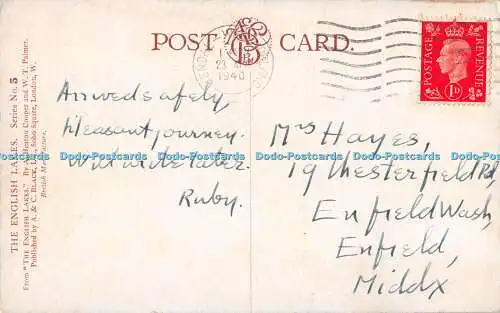 POST CARD.
1940
POSTAGE
REVENUE
1D
THE ENGLISH LAKES. Series No. 5
From "THE ENGLISH LAKES." By A. Heaton Cooper and W. T. Palmer.
Published by A. & C. BLACK, Ltd., Soho Square, London, W.
British Manufacture.
Arrived safely
Pleasant journey.
Will write later.
Ruby.
Mrs Hayes,
19 Chesterfield Rd,
Enfield Wash,
Enfield,
Middx
Dodo-Postcards Dodo-Postcards Dodo-Postcards Dodo-Postcards
Dodo-Postcards Dodo-Postcards Dodo-Postcards Dodo-Postcards